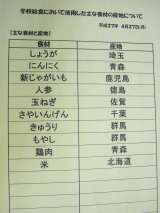 学校給食において使用した主な食材の産地について
平成27年 4月27日(月)
【主な食材と産地】
食材 産地
しょうが 埼玉
にんにく 青森
新じゃがいも 鹿児島
人参 徳島
玉ねぎ 佐賀
さやいんげん 千葉
きゅうり 群馬
もやし 群馬
鶏肉 青森
米 北海道